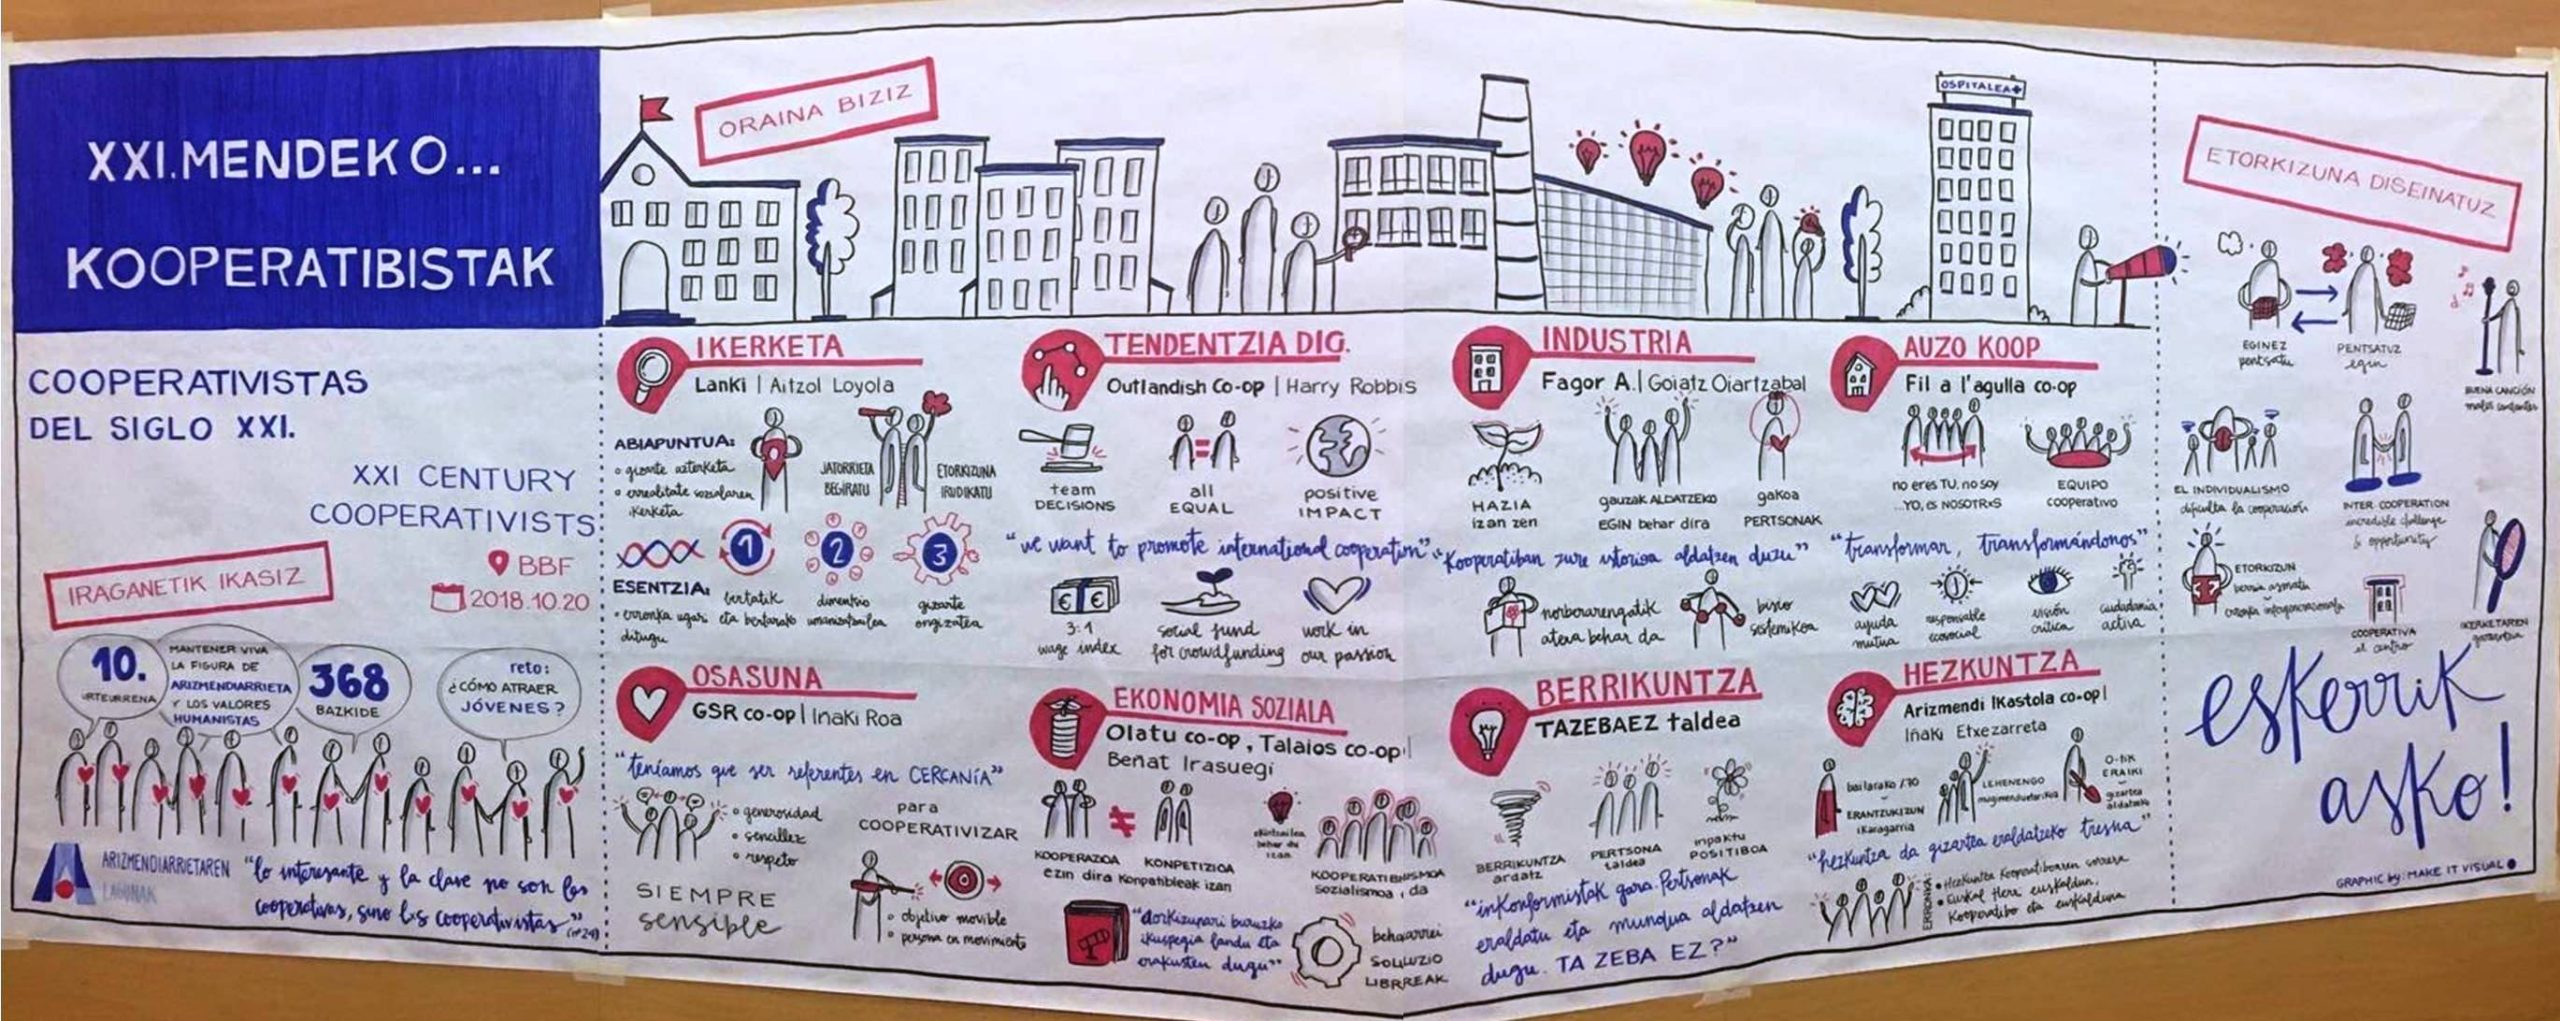 XXI.MENDEKO...
KOOPERATIBISTAK
COOPERATIVISTAS
DEL SIGLO XXI.
XXI CENTURY
COOPERATIVISTS
BBF
2018.10.20
IRAGANETIK IKASIZ
10.
URTEURRENA
MANTENER VIVA
LA FIGURA DE
ARIZMENDIARRIETA
Y LOS VALORES
HUMANISTAS
368
BAZKIDE
reto:
¿CÓMO ATRAER
JÓVENES?
ARIZMENDIARRIETAREN
LAGUNAK
"lo interesante y la clave no son las
cooperativas, sino los cooperativistas"
ORAINA BIZIZ
OSPITALEA+
IKERKETA
Lanki | Aitzol Loyola
ABIAPUNTUA:
• gizarte azterketa
• errealitate sozialaren
ikerketa
JATORRIETA
BEGIRATU
ETORKIZUNA
IRUDIKATU
1
2
3
ESENTZIA:
• erronka ugari
ditugu
bertatik
eta bertarako
dimentsio
umanizatzailea
gizarte
ongizatea
TENDENTZIA DIG.
Outlandish Co-op | Harry Robbis
team
DECISIONS
all
EQUAL
positive
IMPACT
"we want to promote international cooperation"
€ €
3:1
wage index
social fund
for crowdfunding
work in
our passion
INDUSTRIA
Fagor A. | Goiatz Oiartzabal
HAZIA
izan zen
gauzak ALDATZEKO
EGIN behar dira
gakoa
PERTSONAK
"Kooperatiban zure istorioa aldatzen duzu"
norberarengatik
atera behar da
bisio
sistemikoa
AUZO KOOP
Fil a l'agulla co-op
no eres TU, no soy
YO, es NOSOTRXS
EQUIPO
cooperativo
"transformar, transformándonos"
ayuda
mutua
responsable
ecosocial
visión
crítica
ciudadanía
activa
OSASUNA
GSR co-op | Iñaki Roa
"teníamos que ser referentes en CERCANÍA"
• generosidad
• sencillez
• respeto
para
COOPERATIVIZAR
SIEMPRE
sensible
• objetivo movible
• persona en movimiento
EKONOMIA SOZIALA
Olatu co-op, Talaios co-op |
Beñat Irasuegi
KOOPERAZIOA
KONPETIZIOA
ezin dira konpatibleak izan
behar du
izan
KOOPERATIBISMOA
sozialismoa da
"etorkizunari buruzko
ikuspegia landu eta
erakusten dugu"
behaarrei
SOLUZIO
LIBRREAK
BERRIKUNTZA
TAZEBAEZ taldea
BERRIKUNTZA
ardatz
PERTSONA
taldea
inpaktu
POSITIBOA
"inkonformistak gara. Pertsonak
eraldatu eta mundua aldatzen
dugu. TA ZEBA EZ?"
HEZKUNTZA
Arizmendi Ikastola co-op |
Iñaki Etxezarreta
bailarako %70
ERANTZUKIZUN
ikaragarria
LEHENENGO
mugimenduetarikoa
0-tik
ERAIKI
gizartea
aldatzeko
"hezkuntza da gizartea eraldatzeko tresna"
ERRONKA:
• Hezkuntza kooperatiboaren sarrera
• Euskal Herri euskaldun,
kooperatibo eta euskalduna
ETORKIZUNA DISEINATUZ
EGINEZ
pentsatu
PENTSATUZ
egin
BUENA CANCIÓN
malos cantantes
EL INDIVIDUALISMO
dificulta la cooperación
INTER COOPERATION
incredible challenge
& opportunity
ETORKIZUN
berria asmatu
erronka intergenerazionala
COOPERATIVA
el centro
IKERKETAREN
garrantzia
eskerrik
asko!
GRAPHIC by: MAKE IT VISUAL